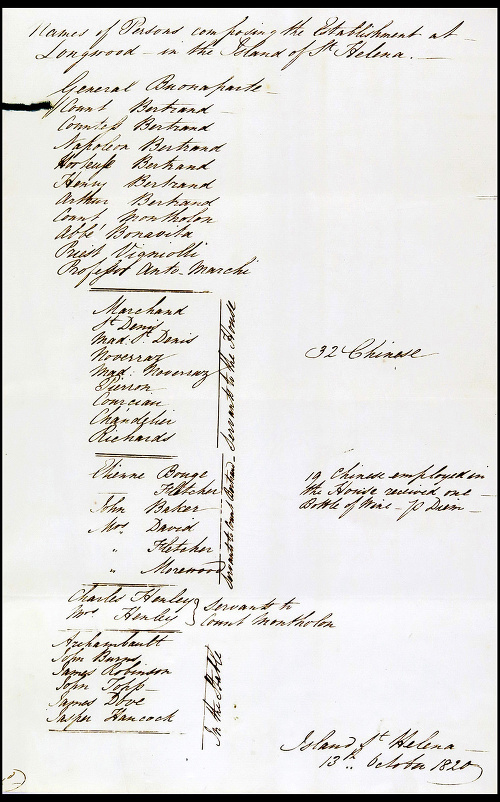 Names of Persons composing the Establishment at
Longwood – in the Island of St. Helena. –
General Buonaparte –
Count Bertrand –
Countess Bertrand
Napoleon Bertrand
Hortense Bertrand
Henry Bertrand
Arthur Bertrand
Count Montholon
Abbé Bonavita
Priest Vigniolli
Professor Anto-Marchi
Marchand
St. Denis
Mad: St. Denis
Noverraz
Mad: Noverraz
Pierron
Courseau
Chandelier
Richards
Servants to the House
32 Chinese
Etienne Bouge
Fletcher
John Baker
Mrs. David
" Fletcher
" Morewood
Servants to Count Bertrand
19 Chinese employed in
the House received one
Bottle of Wine – P Diem –
Charles Henley
Mrs. Henley
Servants to
Count Montholon
Archambault
John Burns
James Robinson
John Topp
James Dove
Jasper Hancock
In the Stable
Island St. Helena
13th. October 1820